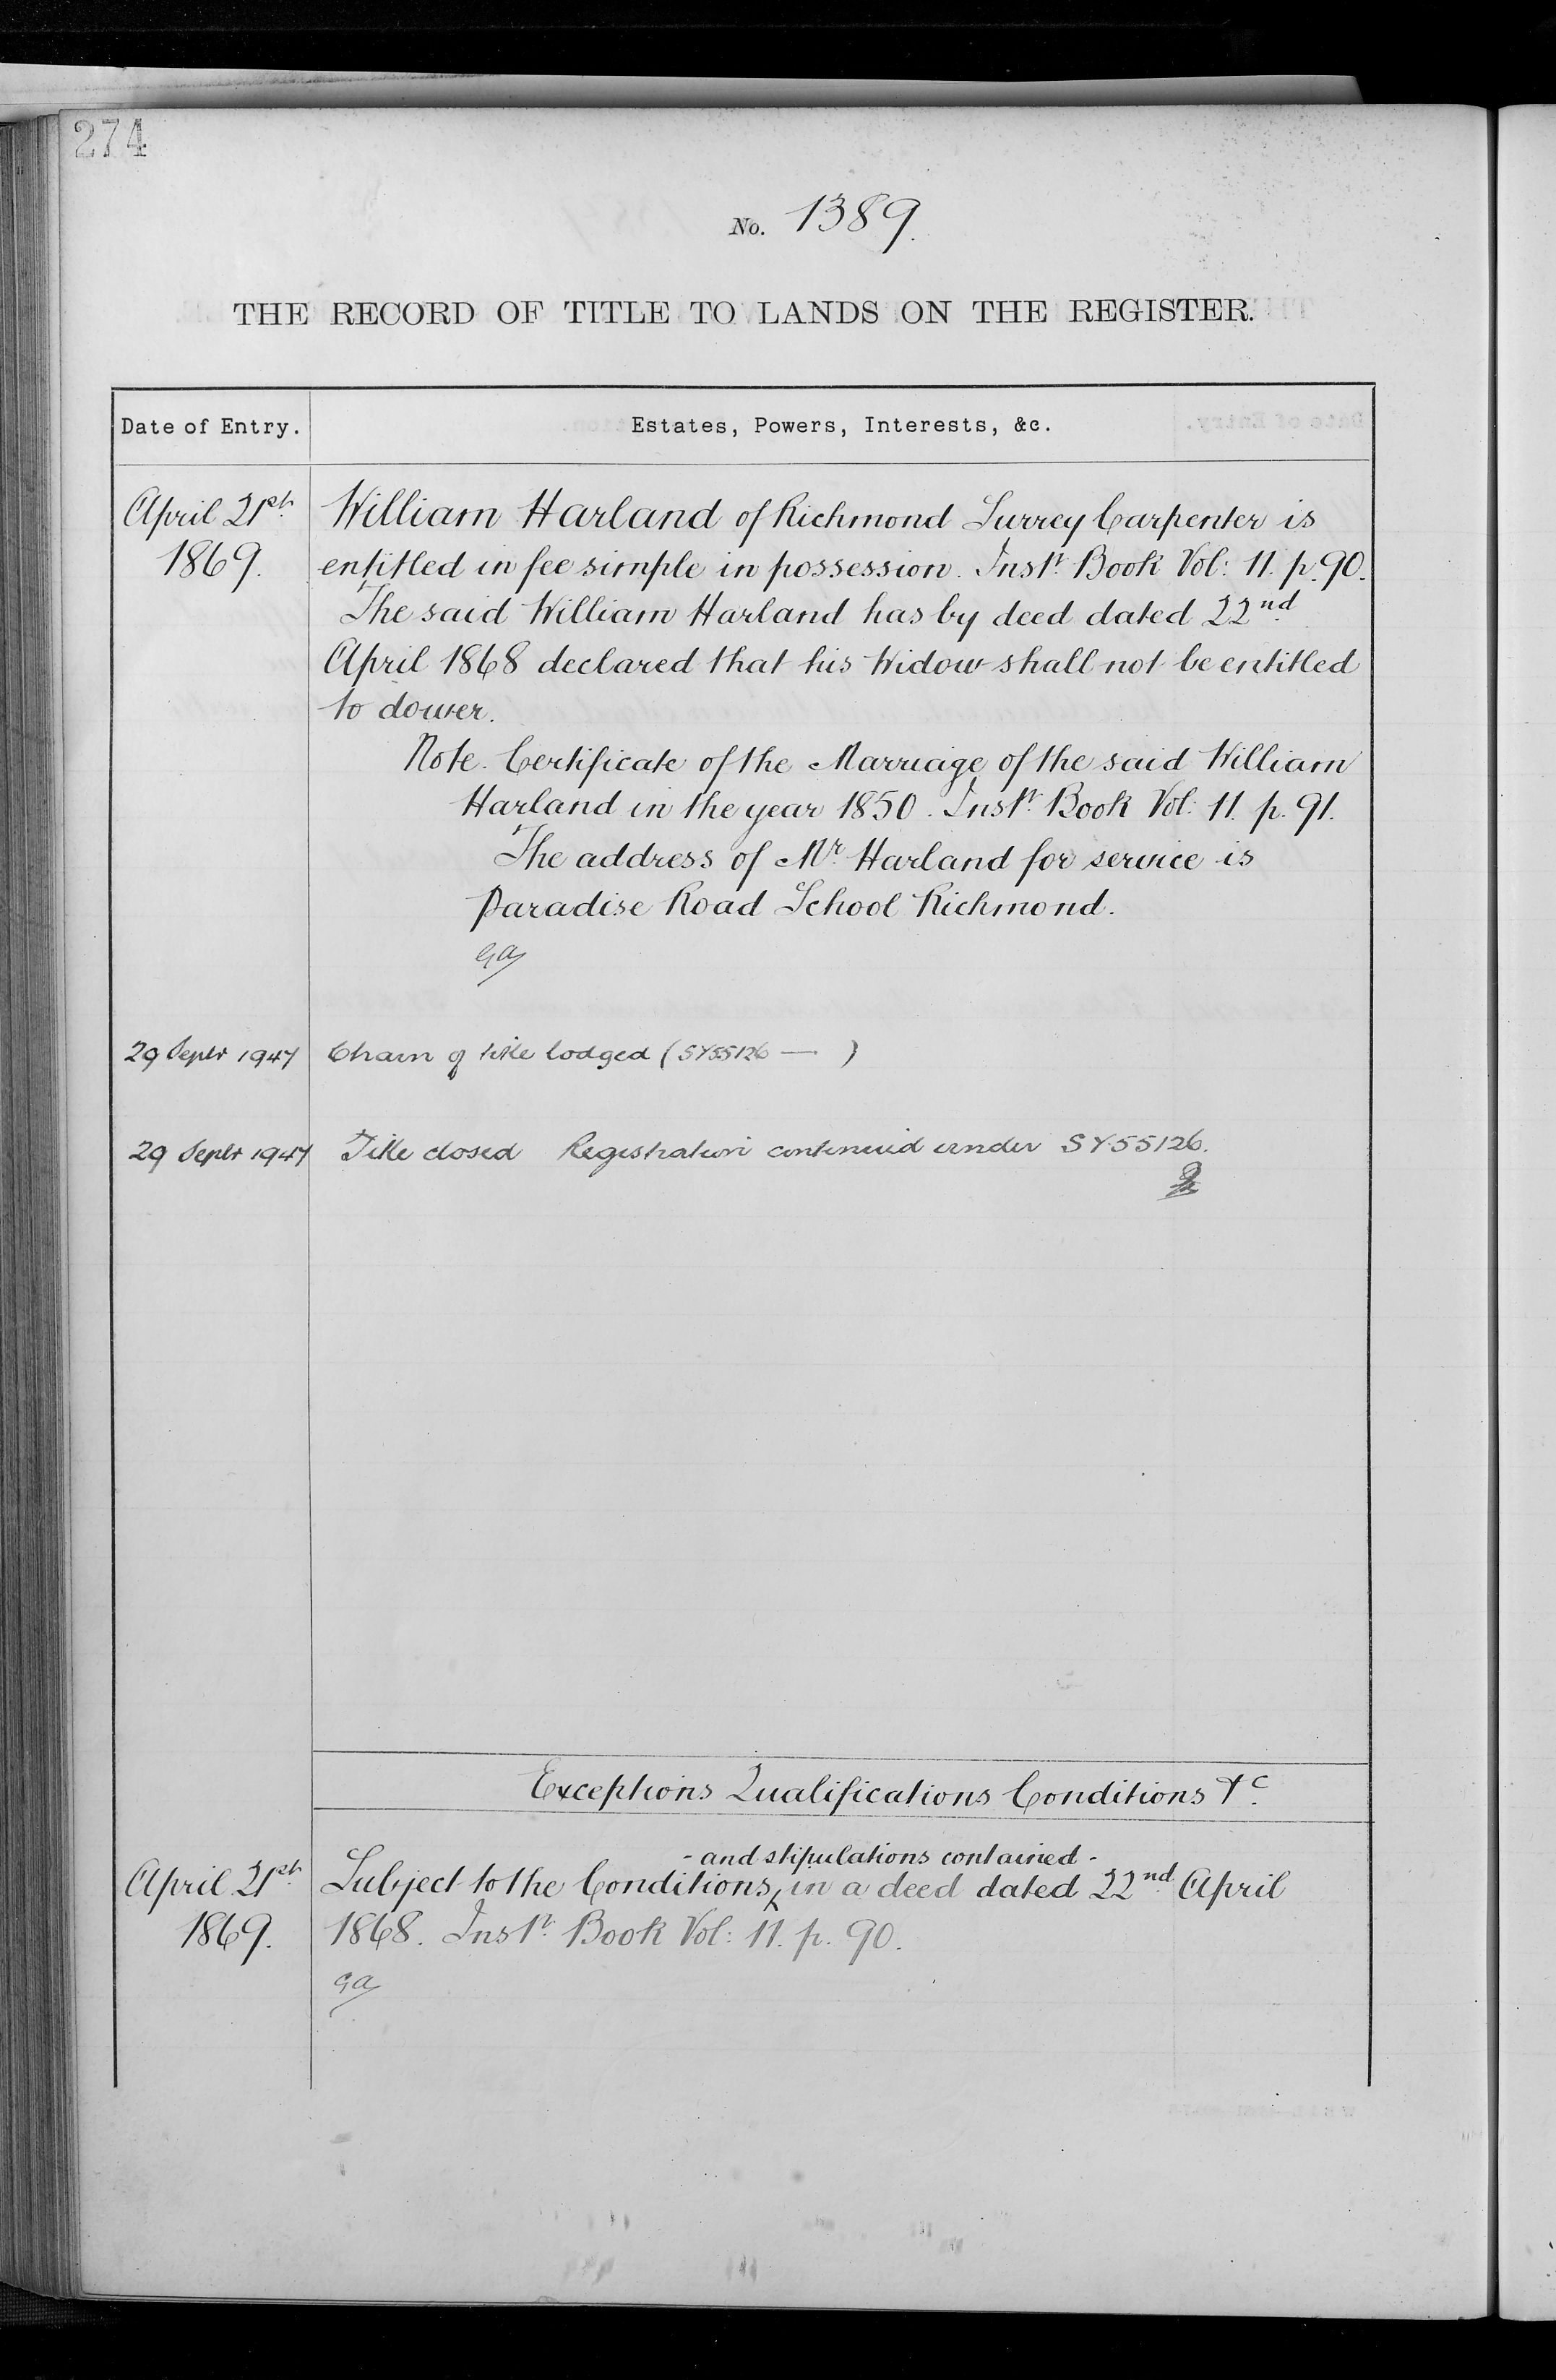 274
No. 1389.
THE RECORD OF TITLE TO LANDS ON THE REGISTER.
Date of Entry. Estates, Powers, Interests, &c.
April 21st William Harland of Richmond Surrey Carpenter is
1869. entitled in fee simple in possession. Inst. Book Vol: 11. p. 90.
The said William Harland has by deed dated 22nd
April 1868 declared that his Widow shall not be entitled
to dower.
Note. Certificate of the Marriage of the said William
Harland in the year 1850. Inst. Book Vol: 11. p. 91.
The address of Mr. Harland for service is
Paradise Road School Richmond.
GA
29 Septr 1947 Chain of title lodged (SY55126 — )
29 Septr 1947 Title closed Registration continued under SY55126.
Exceptions Qualifications Conditions &c.
- and stipulations contained -
April 21st Subject to the Conditions in a deed dated 22nd April
1869. 1868. Inst. Book Vol: 11. p. 90.
GA